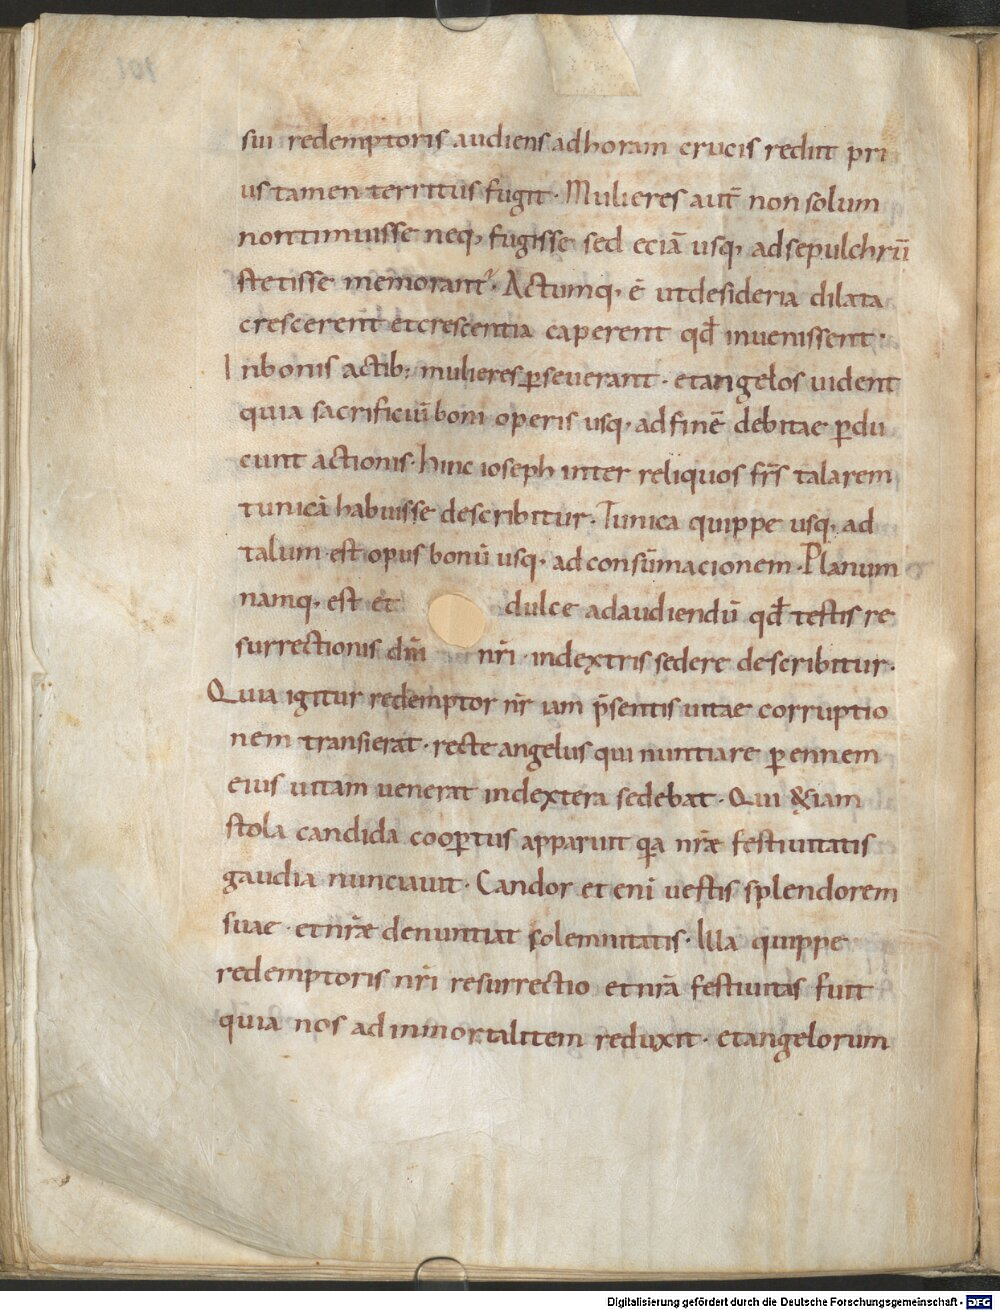 sui redemptoris audiens ad horam crucis rediit pri
us tamen territus fugit · Mulieres aut̄ non solum
non timuisse neq; fugisse sed eciā usq; ad sepulchrū
stetisse memorant᷑ · Actumq; ē ut desideria dilata
crescerent et crescentia caperent qđ inuenissent ·
In bonis actib; mulieres ꝑseuerant · et angelos uident
quia sacrificiū boni operis usq; ad finē debitae ꝑdu
cunt actionis · hinc ioseph inter reliquos fr̄s talarem
tunicā habuisse describitur · Tunica quippe usq; ad
talum · est opus bonū usq; ad consūmacionem · Planum
namq; est et dulce ad audiendū qđ testis re
surrectionis dn̄i nr̄i · in dextris sedere describitur ·
Quia igitur redemptor nr̄ iam p̄sentis uitae corruptio
nem transierat · recte angelus qui nuntiare ꝑennem
eius uitam uenerat in dextera sedebat · Qui &iam
stola candida cooꝑtus apparuit q̄a nr̄ae festiuitatis
gaudia nunciauit · Candor et eni uestis splendorem
suae · et nr̄ae denuntiat solemnitatis · Illa quippe
redemptoris nr̄i resurrectio et nr̄a festiuitas fuit
quia nos ad inmortalitem reduxit · et angelorum
101
Digitalisierung gefördert durch die Deutsche Forschungsgemeinschaft - DFG